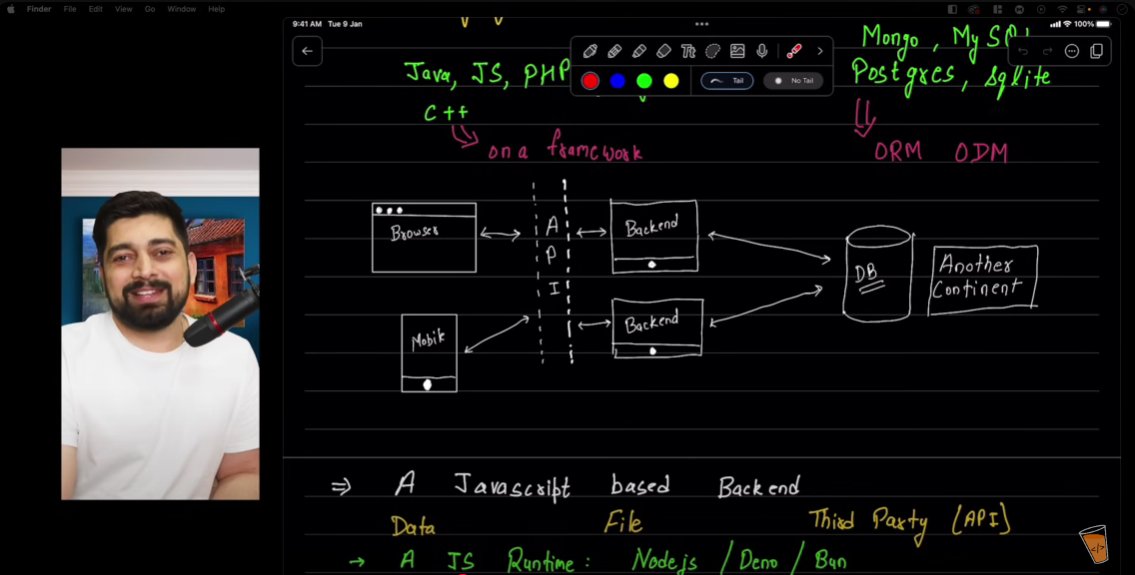 Finder File Edit View Go Window Help
9:41 AM Tue 9 Jan
100%
Tail
No Tail
Java, JS, PHP
C++
on a framework
Mongo, MySQL
Postgres, Sqlite
ORM ODM
Browser
API
Backend
Mobile
Backend
DB
Another
Continent
⇒ A Javascript based Backend
Data File Third Party (API)
→ A JS Runtime: Nodejs / Deno / Bun